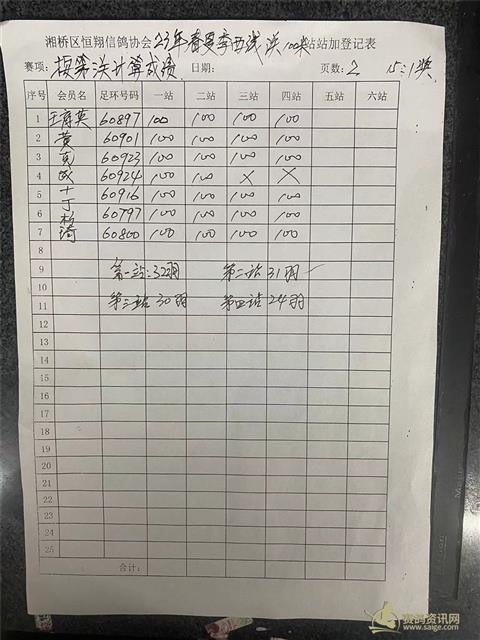 湘桥区恒翔信鸽协会23年春夏季西线 100 站站加登记表
赛项: 计算成绩 日期: 页数: 2 15:1奖
序号 会员名 足环号码 一站 二站 三站 四站 五站 六站
1 英 60897 100 100 100 100
2 黄 60901 100 100 100 100
3 克 60923 100 100 100 100
4 成 60924 100 100 X X
5 十 60916 100 100 100 100
6 丁 60797 100 100 100 100
7 杉琦 60800 100 100 100 100
8
9 第一站:32羽 第二站31羽
10
11 第三站30羽 第四站24羽
12
13
14
15
16
17
18
19
20
21
22
23
24
25
合计:
赛鸽资讯网
www.saige.com